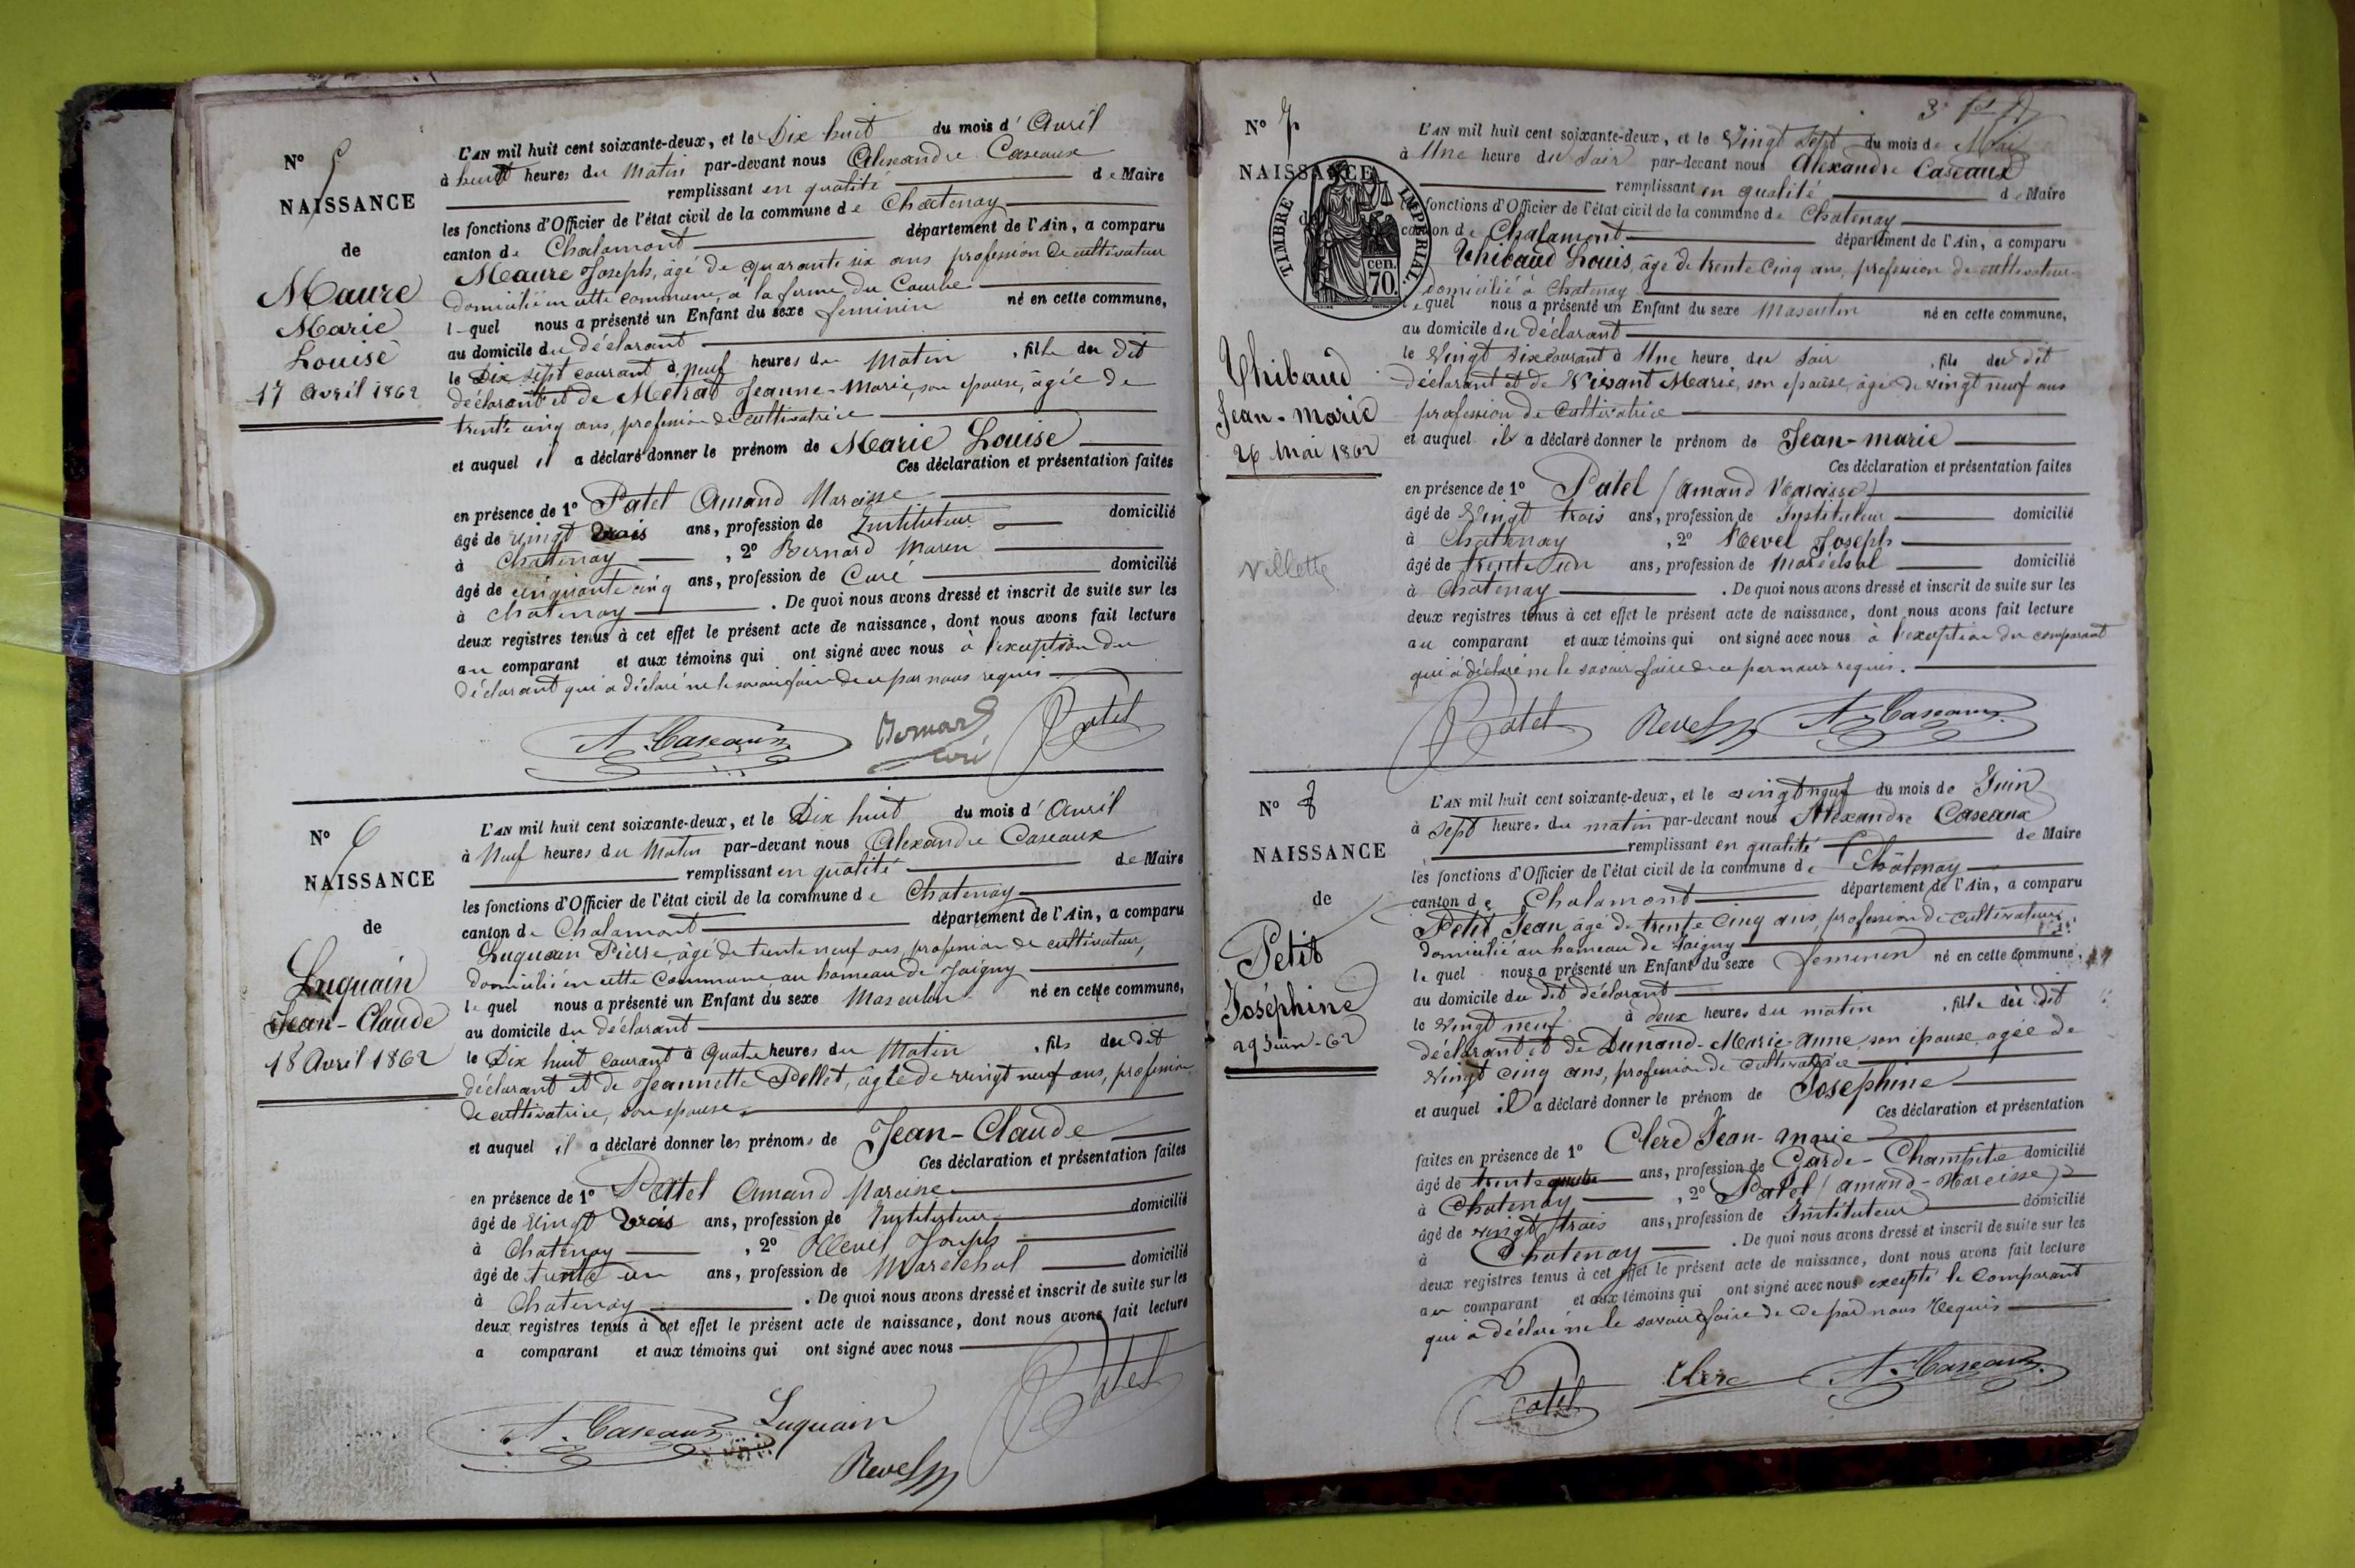 N° 5
NAISSANCE
de
Maure
Marie
Louise
17 Avril 1862
L'AN mil huit cent soixante-deux, et le Dix huit du mois d' Avril
à huit heures du Matin par-devant nous Alexandre Caseaux
remplissant en qualité de Maire
les fonctions d'Officier de l'état civil de la commune de Chatenay
canton de Chalamont département de l'Ain, a comparu
Maure Joseph, âgé de quarante six ans profession de cultivateur
domicilié en cette commune, à la ferme du Courbe
lequel nous a présenté un Enfant du sexe feminin né en cette commune,
au domicile du déclarant
le Dix sept courant à neuf heures du Matin, fille du dit
déclarant et de Metrat Jeanne-Marie, son épouse, âgée de
trente cinq ans, profession de cultivatrice
et auquel il a déclaré donner le prénom de Marie Louise
Ces déclaration et présentation faites
en présence de 1° Patel Amand Narcisse
âgé de vingt trois ans, profession de Instituteur domicilié
à Chatenay, 2° Bernard Marin
âgé de cinquante cinq ans, profession de Curé domicilié
à Chatenay. De quoi nous avons dressé et inscrit de suite sur les
deux registres tenus à cet effet le présent acte de naissance, dont nous avons fait lecture
au comparant et aux témoins qui ont signé avec nous à l'exception du
déclarant qui a déclaré ne le savoir faire de ce par nous requis
A. Caseaux Bernard Patel
curé
N° 6
NAISSANCE
de
Luquain
Jean-Claude
18 Avril 1862
L'AN mil huit cent soixante-deux, et le Dix huit du mois d' Avril
à Neuf heures du Matin par-devant nous Alexandre Caseaux
remplissant en qualité de Maire
les fonctions d'Officier de l'état civil de la commune de Chatenay
canton de Chalamont département de l'Ain, a comparu
Luquain Pierre, âgé de trente neuf ans, profession de cultivateur,
domicilié en cette commune au hameau de Joigny
lequel nous a présenté un Enfant du sexe Masculin né en cette commune,
au domicile du déclarant
le Dix huit courant à quatre heures du Matin, fils du dit
déclarant et de Jeannette Pellet, âgée de vingt neuf ans, profession
de cultivatrice, son épouse
et auquel il a déclaré donner les prénoms de Jean-Claude
Ces déclaration et présentation faites
en présence de 1° Patel Amand Narcisse
âgé de vingt trois ans, profession de Instituteur domicilié
à Chatenay, 2° Revel Joseph
âgé de trente un ans, profession de Maréchal domicilié
à Chatenay. De quoi nous avons dressé et inscrit de suite sur les
deux registres tenus à cet effet le présent acte de naissance, dont nous avons fait lecture
a comparant et aux témoins qui ont signé avec nous
A. Caseaux Luquain Patel
Revel
N° 7
NAISSANCE
de
TIMBRE IMPERIAL.
cen.
70.
Thibaud
Jean-marie
26 Mai 1862
Villette
L'AN mil huit cent soixante-deux, et le Vingt Sept du mois de Mai
à Une heure du Soir par-devant nous Alexandre Caseaux
remplissant en qualité de Maire
les fonctions d'Officier de l'état civil de la commune de Chatenay
canton de Chalamont département de l'Ain, a comparu
Thibaud Louis, âgé de trente cinq ans, profession de cultivateur
domicilié à Chatenay
lequel nous a présenté un Enfant du sexe Masculin né en cette commune,
au domicile du déclarant
le Vingt six courant à Une heure du Soir, fils du dit
déclarant et de Vissant Marie, son épouse, âgée de vingt neuf ans
profession de Cultivatrice
et auquel il a déclaré donner le prénom de Jean-marie
Ces déclaration et présentation faites
en présence de 1° Patel (Amand Narcisse)
âgé de Vingt trois ans, profession de Instituteur domicilié
à Chatenay, 2° Revel Joseph
âgé de trente un ans, profession de Maréchal domicilié
à Chatenay. De quoi nous avons dressé et inscrit de suite sur les
deux registres tenus à cet effet le présent acte de naissance, dont nous avons fait lecture
au comparant et aux témoins qui ont signé avec nous à l'exception du comparant
qui a déclaré ne le savoir faire de ce par nous requis.
Patel Revel A. Caseaux
N° 8
NAISSANCE
de
Petit
Joséphine
29 Juin-62
L'AN mil huit cent soixante-deux, et le vingt neuf du mois de Juin
à Sept heures du matin par-devant nous Alexandre Caseaux
remplissant en qualité de Maire
les fonctions d'Officier de l'état civil de la commune de Châtenay
canton de Chalamont département de l'Ain, a comparu
Petit Jean, âgé de trente cinq ans, profession de cultivateur
domicilié au hameau de Joigny
lequel nous a présenté un Enfant du sexe feminin né en cette commune,
au domicile du dit déclarant
le Vingt neuf à deux heures du matin, fille du dit
déclarant et de Dunand-Marie-Anne, son épouse, agée de
Vingt cinq ans, profession de cultivatrice
et auquel il a déclaré donner le prénom de Josephine
Ces déclaration et présentation
faites en présence de 1° Clerc Jean-marie
âgé de trente quatre ans, profession de Garde-Champêtre domicilié
à Chatenay, 2° Patel (amand-Narcisse)
âgé de vingt trois ans, profession de Instituteur domicilié
à Chatenay. De quoi nous avons dressé et inscrit de suite sur les
deux registres tenus à cet effet le présent acte de naissance, dont nous avons fait lecture
au comparant et aux témoins qui ont signé avec nous excepté le Comparant
qui a déclaré ne le savoir faire de ce par nous Requis
Patel Clerc A. Caseaux